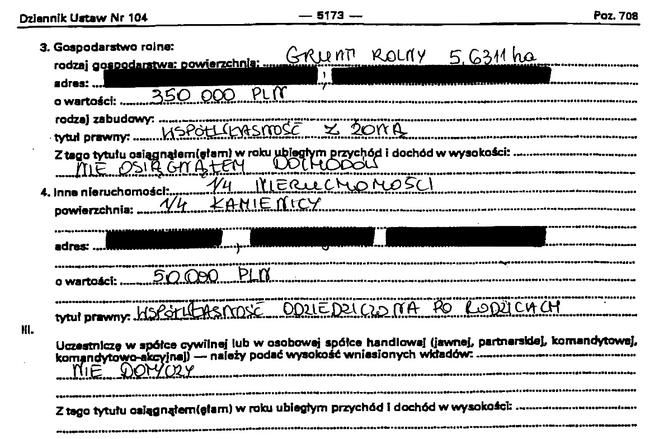 Dziennik Ustaw Nr 104 — 5173 — Poz. 708
3. Gospodarstwo rolne:
rodzaj gospodarstwa: powierzchnia: GRUNT ROLNY 5,6311 ha
adres:
o wartości: 350 000 PLN
rodzaj zabudowy:
tytuł prawny: WSPÓŁWŁASNOŚĆ Z ŻONĄ
Z tego tytułu osiągnąłem(ęłam) w roku ubiegłym przychód i dochód w wysokości:
NIE OSIĄGNĄŁEM DOCHODÓW
4. Inne nieruchomości: 1/4 NIERUCHOMOŚCI
powierzchnia: 1/4 KAMIENICY
adres:
o wartości: 50 000 PLN
tytuł prawny: WSPÓŁWŁASNOŚĆ ODZIEDZICZONA PO RODZICACH
III.
Uczestniczę w spółce cywilnej lub w osobowej spółce handlowej (jawnej, partnerskiej, komandytowej,
komandytowo-akcyjnej) — należy podać wysokość wniesionych wkładów:
NIE DOTYCZY
Z tego tytułu osiągnąłem(ęłam) w roku ubiegłym przychód i dochód w wysokości: